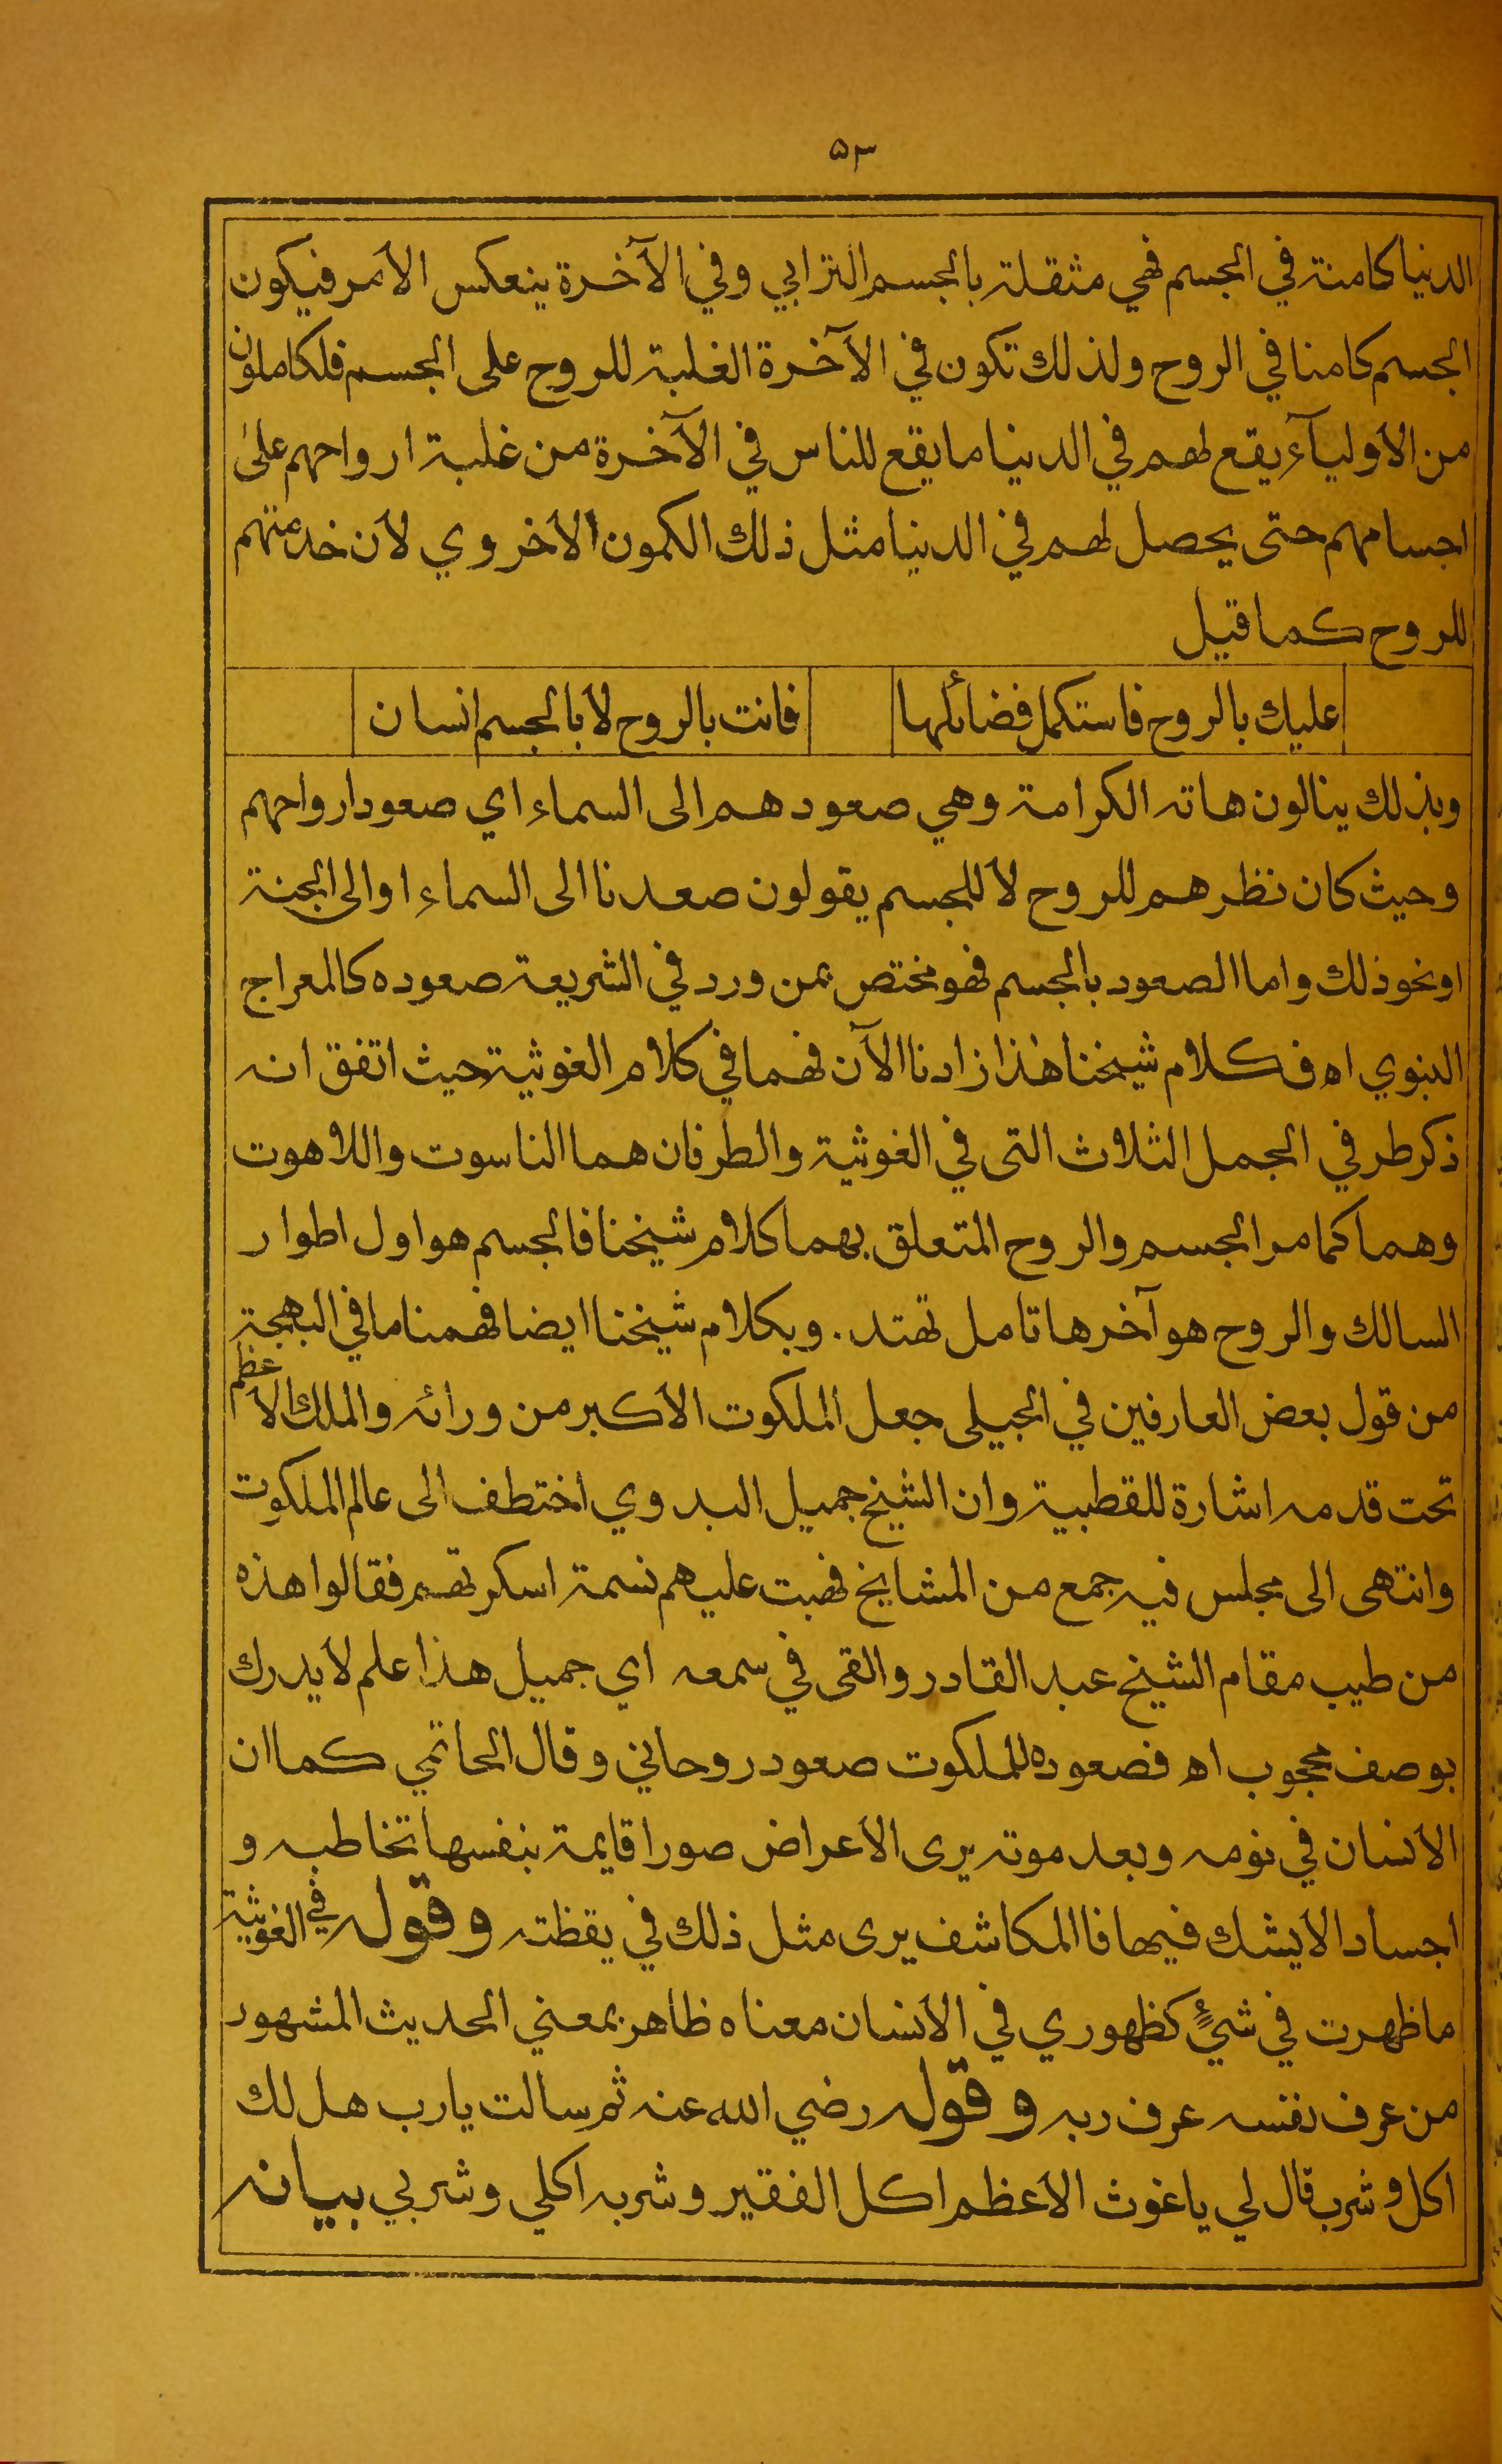 ٥٣
الدنيا كامنة في الجسم فهي مثقلة بالجسم الترابي وفي الآخرة ينعكس الأمر فيكون
الجسم كامنا في الروح ولذلك تكون في الآخرة الغلبة للروح على الجسم فلكاملون
من الأوليآء يقع لهم في الدنيا ما يقع للناس في الآخرة من غلبة ارواحهم على
اجسامهم حتى يحصل لهم في الدنيا مثل ذلك الكمون الأخروي لأن خدمتهم
للروح كما قيل
عليك بالروح فاستكمل فضائلها فانت بالروح لا بالجسم انسان
وبذلك ينالون هاته الكرامة وهي صعودهم الى السماء اي صعود ارواحهم
وحيث كان نظرهم للروح لا للجسم يقولون صعدنا الى السماء او الى الجنة
او نحو ذلك واما الصعود بالجسم فهو مختص بمن ورد في الشريعة صعوده كالمعراج
النبوي اه فكلام شيخنا هٰذا زادنا الآن فهما في كلام الغوثية حيث اتفق انه
ذكر طرفي الجمل الثلاث التى في الغوثية والطرفان هما الناسوت واللاهوت
وهما كما مر الجسم والروح المتعلق بهما كلام شيخنا فالجسم هو اول اطوار
السالك والروح هو آخرها تامل تهتد. وبكلام شيخنا ايضا فهمنا ما في البهجة
من قول بعض العارفين في الجيلى جعل الملكوت الأكبر من ورائه والملك الأعظم
تحت قدمه اشارة للقطبية وان الشيخ جميل البدوي اختطف الى عالم الملكوت
وانتهى الى مجلس فيه جمع من المشايخ فهبت عليهم نسمة اسكرتهم فقالوا هذه
من طيب مقام الشيخ عبد القادر والقى في سمعه اي جميل هذا علم لا يدرك
بوصف محجوب اه فصعوده للملكوت صعود روحاني وقال الحاتمي كما ان
الأنسان في نومه وبعد موته يرى الأعراض صورا قايمة بنفسها تخاطبه و
اجسادا لا يشك فيها فالمكاشف يرى مثل ذلك في يقظته وقوله في الغوثية
ما ظهرت في شيءٍ كظهوري في الأنسان معناه ظاهر بمعني الحديث المشهور
من عرف نفسه عرف ربه وقوله رضي الله عنه ثم سالت يارب هل لك
اكل وشرب قال لي ياغوث الأعظم اكل الفقير وشربه اكلي وشربي بيانه